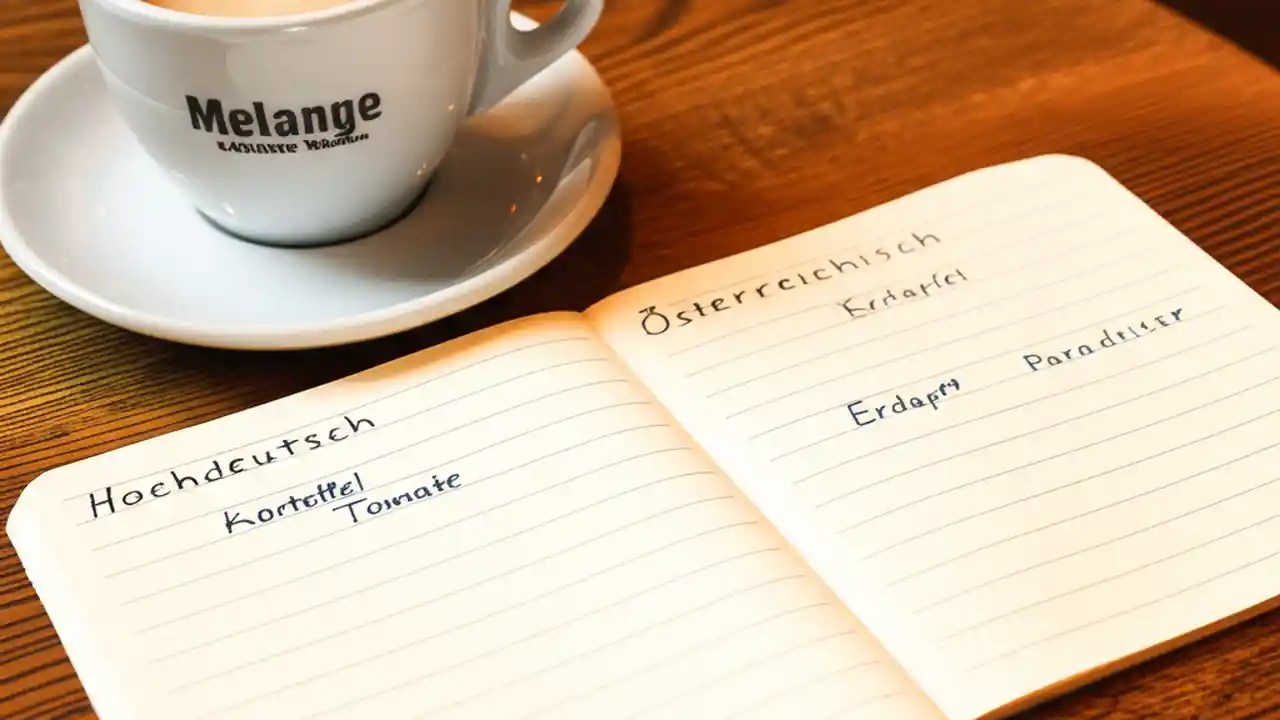 Melange
Hochdeutsch
Kartoffel
Tomate
Österreichisch
Erdapfel
Paradeiser